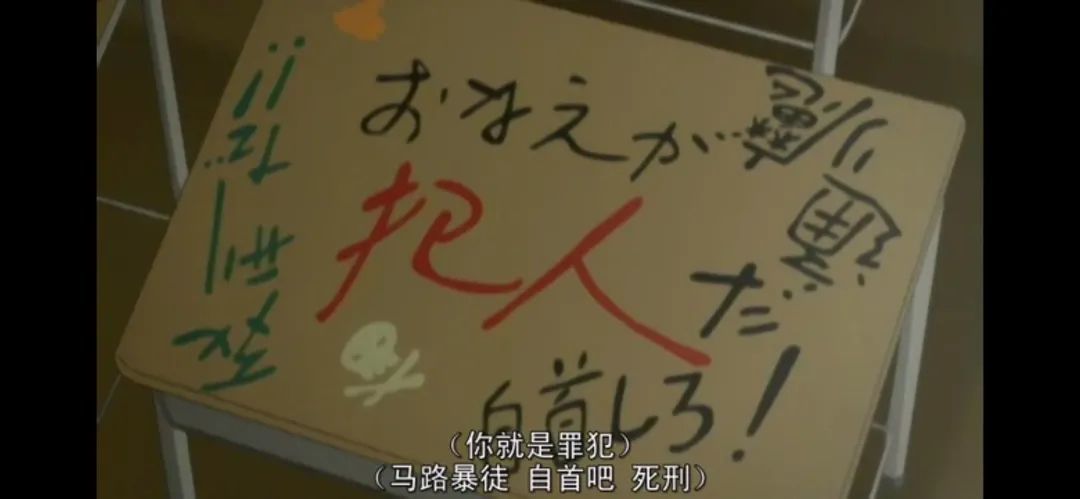 おまえが
犯人だ
自首しろ!
通り魔
死刑だ!!
（你就是罪犯）
（马路暴徒 自首吧 死刑）